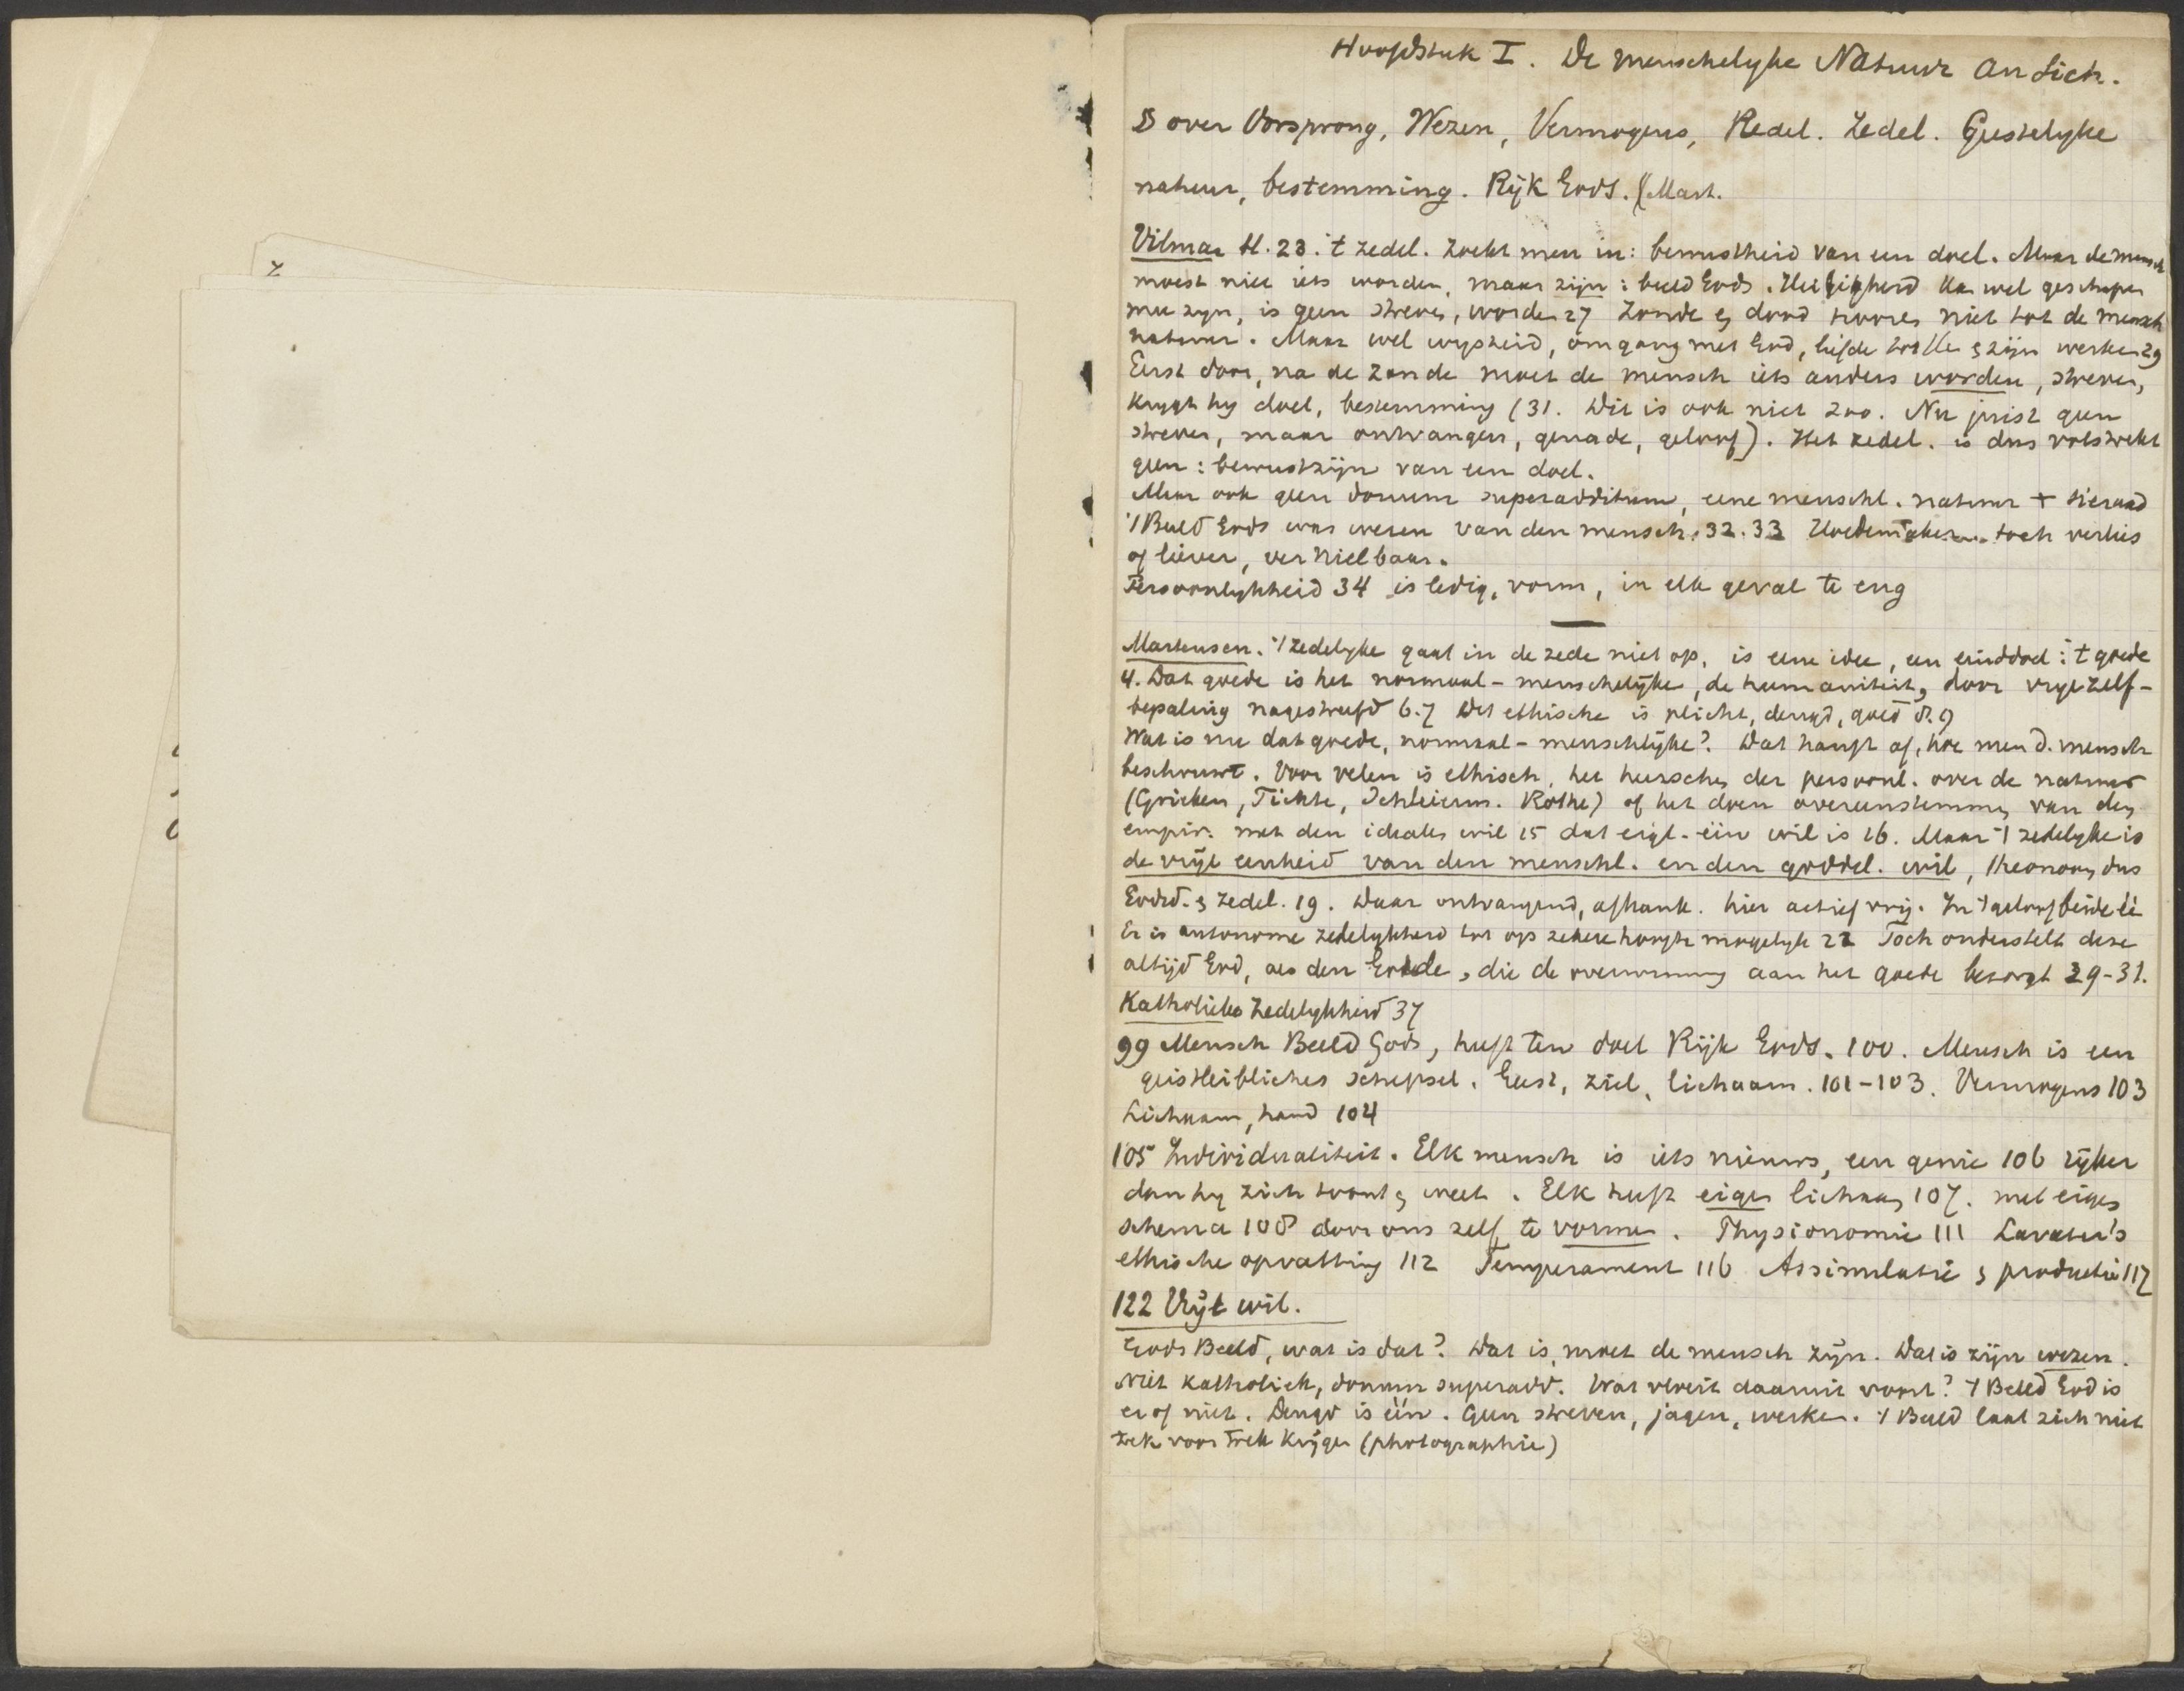 Hoofdstuk I. De menschelyke Natuur an sich.
§ over Oorsprong, Wezen, Vermogens, Redel. Zedel. Geestelyke
natuur, bestemming. Rijk Gods. (Mart.
Vilmar H. 23. 't zedel. zoekt men in: bewustheid van een doel. Maar de mensch
moest niet iets worden, maar zijn: beeld Gods. Heiligheid kan wel geschapen
mee zyn, is geen streven, worden 27 Zonde en dood hooren niet tot de mensch
natuur. Maar wel wysheid, omgang met God, liefde tot He & zijn werken 29
Eerst door, na de zonde moet de mensch iets anders worden, streven,
krygt hy doel, bestemming (31. Dit is ook niet zoo. Nu juist geen
streven, maar ontvangen, genade, geloof). Het zedel. is dus volstrekt
geen: bewustzijn van een doel.
Maar ook geen donum superadditum, eene menschl. natuur + sieraad
't Beeld Gods was wezen van den mensch. 32. 33 Hoedemaker toch verlies
of liever, vernielbaar.
Persoonlykheid 34 is ledig, vorm, in elk geval te eng
Martensen. 't zedelyke gaat in de zede niet op, is eene idee, een einddoel: 't goede
4. Dat goede is het normaal-menschelijke, de humaniteit, door vrye zelf-
bepaling nagestreefd 6.7 Het ethische is plicht, deugd, goed 8.9
Wat is nu dat goede, normaal-menschlijke? Dat hangt af, hoe men d. mensch
beschouwt. Voor velen is ethisch, het heerschen der persoonl. over de natuur
(Grieken, Fichte, Schleierm. Rothe) of het doen overeenstemmen van den
empir. met den idealen wil 15 dat eigl. één wil is 16. Maar 't zedelyke is
de vrije eenheid van den menschl. en den goddel. wil, theonoom, dus
Godsd. & zedel. 19. Daar ontvangend, afhank. hier actief vrij. In 't geloof beide éé
Er is autonome zedelykheid tot op zekere hoogte mogelyk 22 Toch onderstelt deze
altijd God, als den Goede, die de overwinning aan het goede bezorgt 29-31.
Katholieke zedelykheid 37
99 Mensch Beeld Gods, heeft ten doel Rijk Gods. 100. Mensch is een
geistleibliches schepsel. Geest, ziel, lichaam. 101-103. Vermogens 103
Lichaam, hand 104
105 Individualiteit. Elk mensch is iets nieuws, een genie 106 rijker
dan hy zich toont & weet. Elk heeft eigen lichaam 107. met eigen
schema 108 door ons zelf te vormen. Physionomie 111 Lavater's
ethische opvatting 112 Temperament 116 Assimilatie & productie 117
122 Vrije wil.
Gods Beeld, wat is dat? Dat is, moet de mensch zijn. Dat is zijn wezen.
Niet katholiek, donum superadd. Wat vloeit daaruit voort? 't Beeld God is
er of niet. Deugd is één. Geen streven, jagen, werken. 't Beeld laat zich niet
trek voor trek krijgen (photographie)